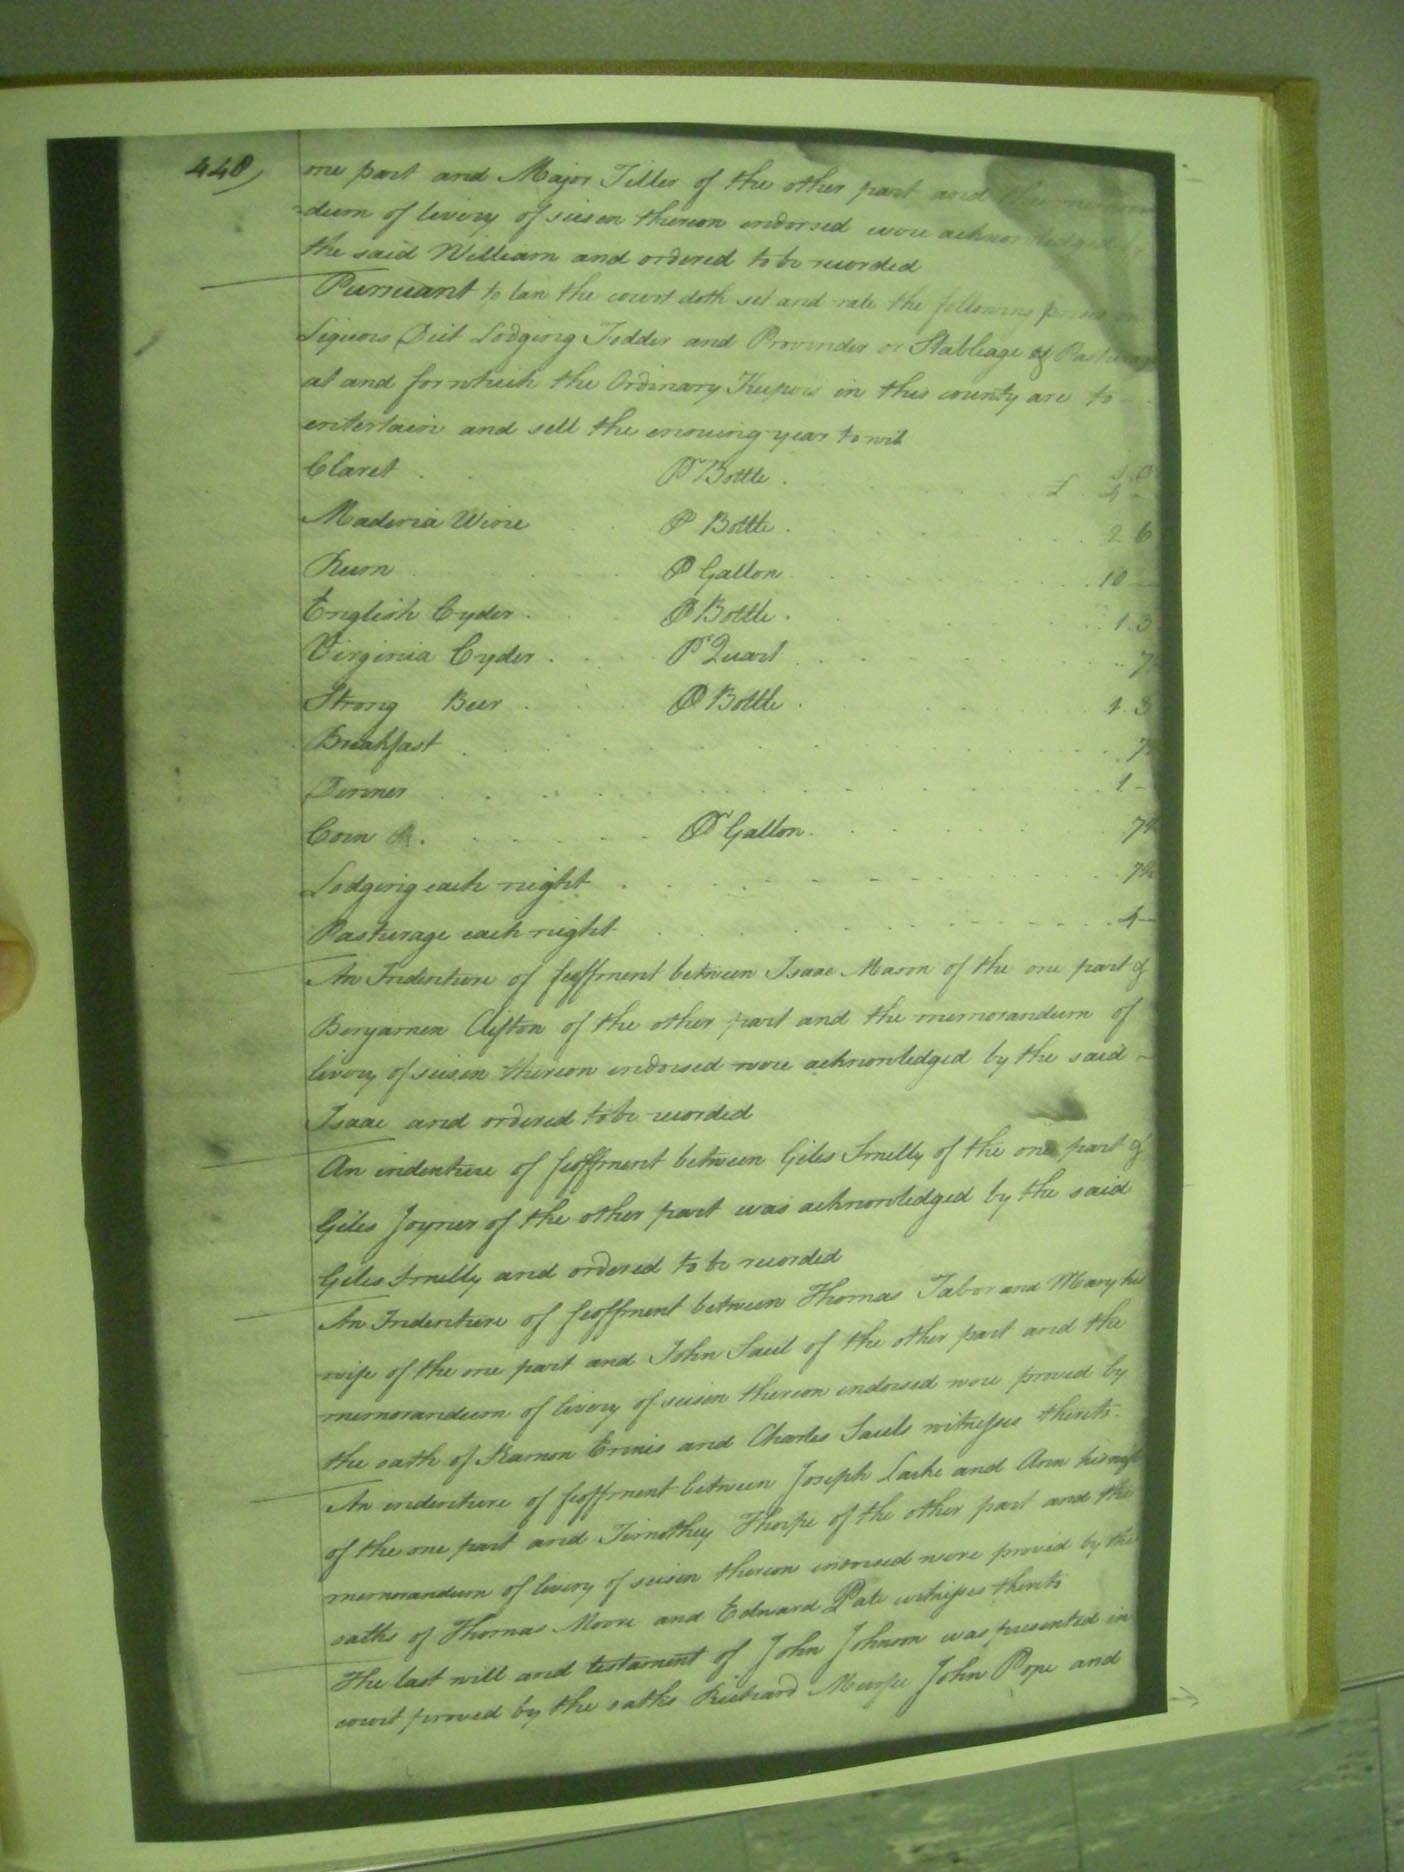 448)
one part and Major Tiller of the other part and the memoran
=dum of livery of seisen thereon endorsed were acknowledged by
the said William and ordered to be recorded
Pursuant to law the court doth set and rate the following prices on
Liquors Diet Lodging Fodder and Provinder or Stableage & Pasturage
at and for which the Ordinary Keepers in this county are to
entertain and sell the ensuing year to wit
Claret . . Pr Bottle . £ 4 -
Maderia Wine P Bottle . 2 6
Rum P Gallon 10 -
English Cyder . P Bottle . 1. 3
Virginia Cyder . Pr Quart 7½
Strong Beer . P Bottle . 1. 3
Breakfast . 7½
Dinner . 1 -
Corn . Pr Gallon . 7½
Lodging each night . 7½
Pasturage each night . 4 -
An Indenture of feoffment between Isaac Mason of the one part &
Benjamen Clifton of the other part and the memorandum of
livery of seisen thereon endorsed were acknowledged by the said
Isaac and ordered to be recorded
An indenture of feoffment between Giles Smelly of the one part &
Giles Joyner of the other part was acknowledged by the said
Giles Smelly and ordered to be recorded
An Indenture of feoffment between Thomas Tabor and Mary his
wife of the one part and John Saul of the other part and the
memorandum of livery of seisen thereon endorsed were proved by
the oath of and Charles Sauls witnesses thereto.
An indenture of feoffment between Joseph Larke and Ann his wife
of the one part and Timothey Thorpe of the other part and the
memorandum of livery of seisen thereon endorsed were proved by the
oaths of Thomas Moore and Edward Pate witnesses thereto
The last will and testament of John Johnson was presented in
court proved by the oaths Richard John Pope and